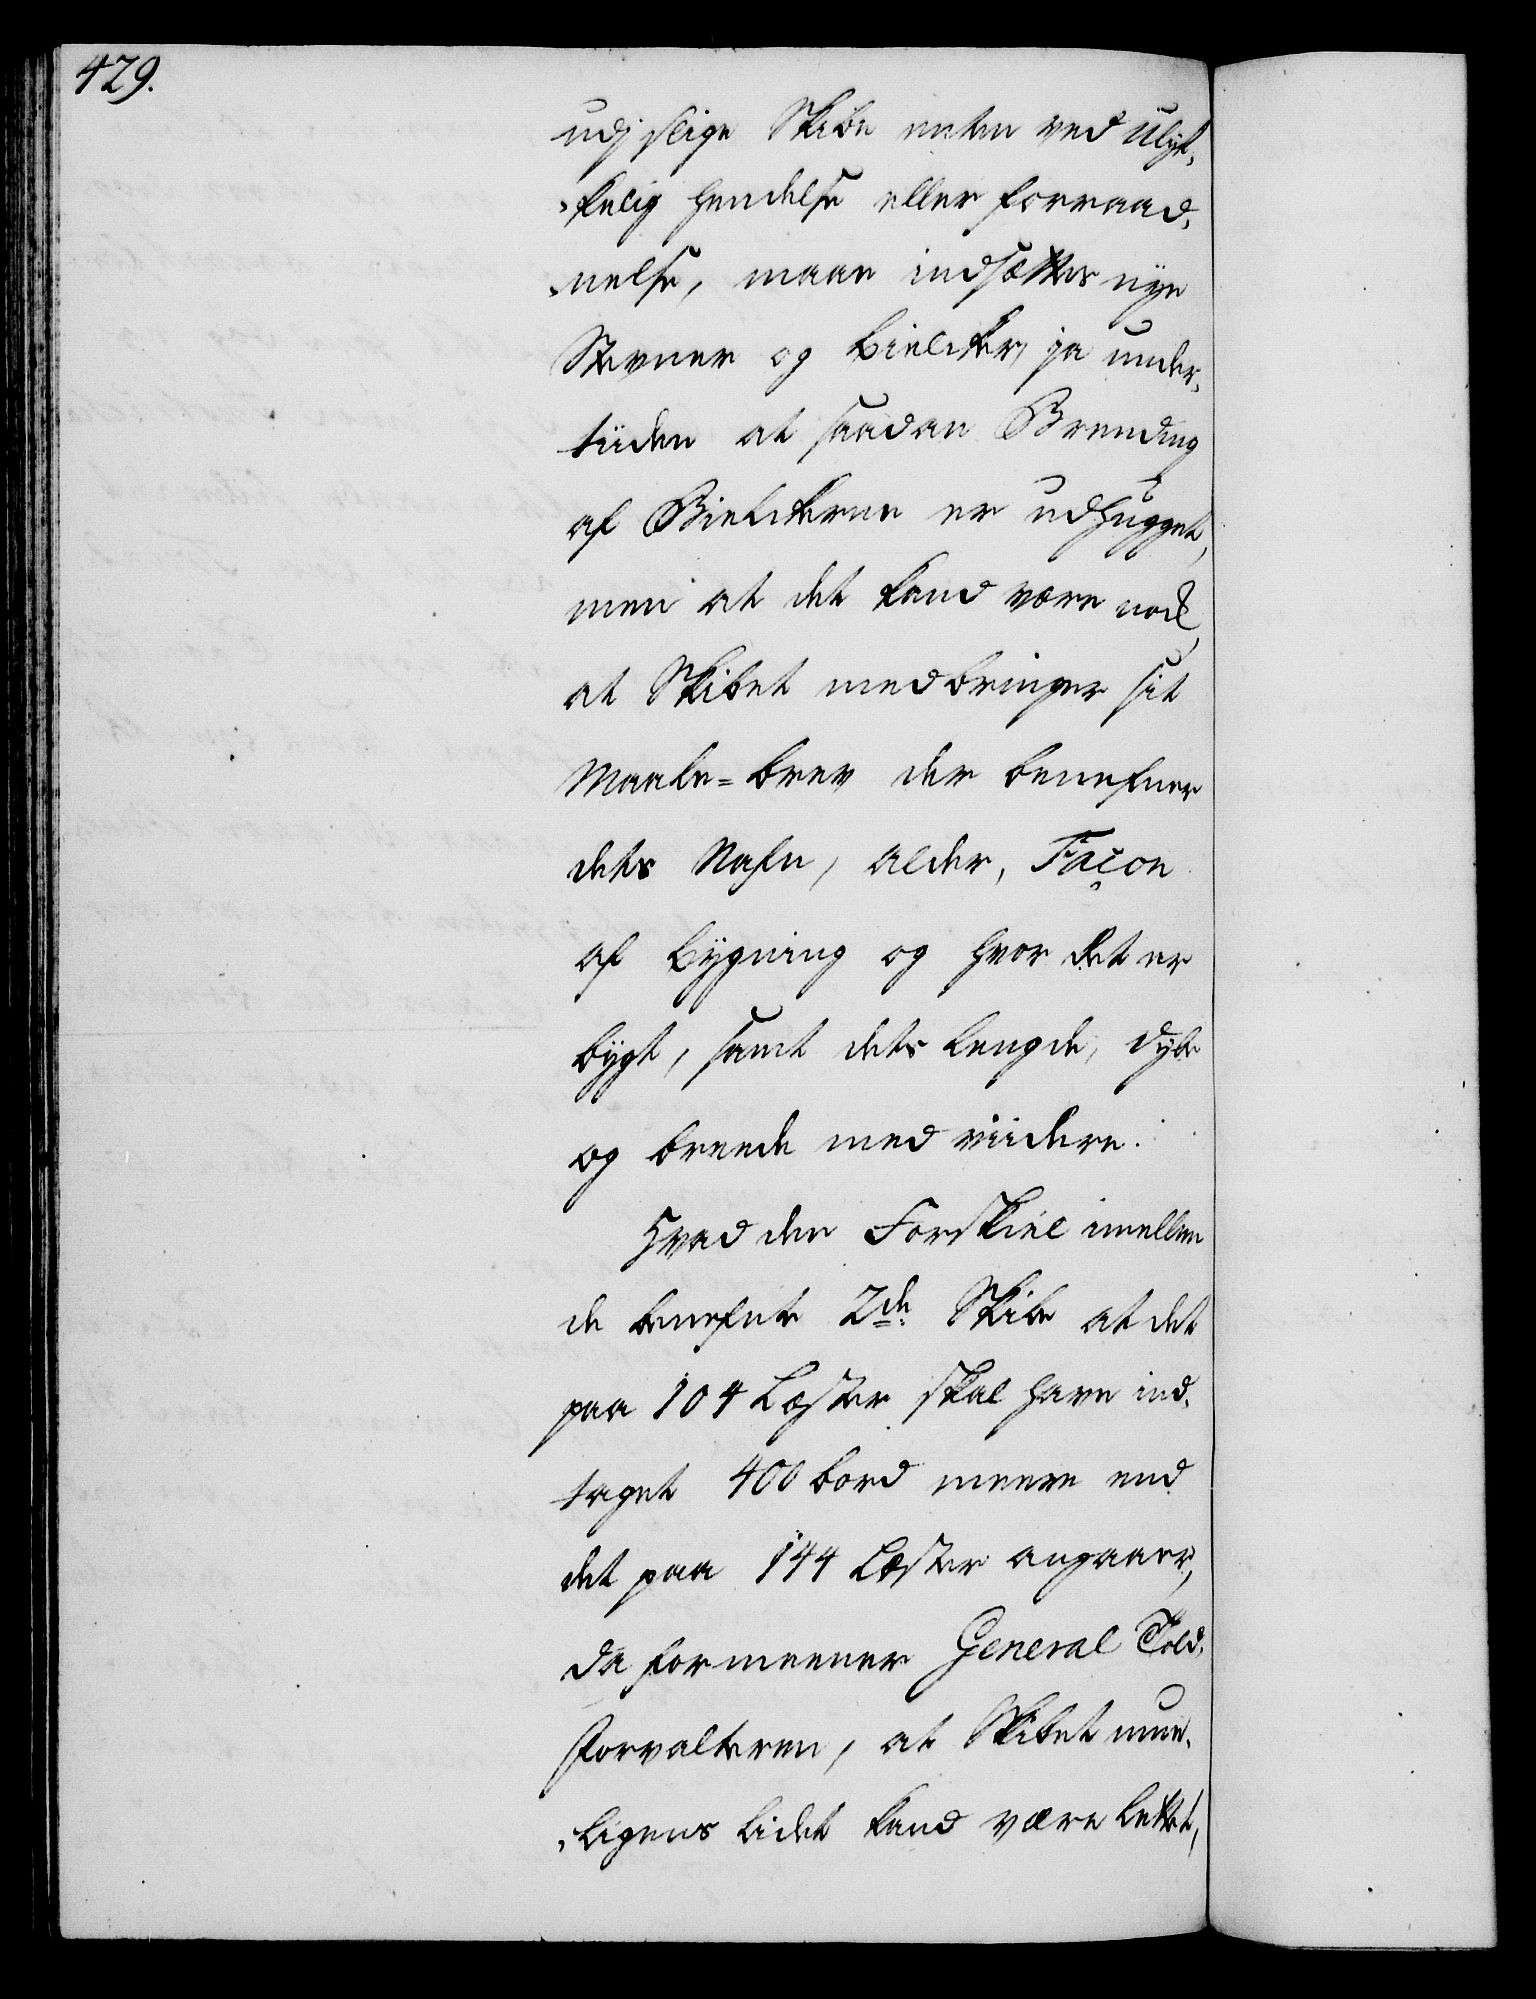 429.
udj slige Skibe enten ved ulyk-
-kelig hendelse eller forraad-
-nelse, maae indsættes nye
Stevner og Bielcker, ja under-
tiiden at saadan Brending
af Bielckerne er udhugget,
men at det kand være nock,
at Skibet medbringer sit
Maale-brev der benefner
dets Nafn, alder, Façon
af bygning og hvor det er
bygt, samt dets Lengde, dybe
og breede med viidere.
Hvad den Forskiel imellem
de benefnte 2de Skibe at det
paa 104 Læster skal have ind-
taget 400 bord meere end
det paa 144 Læster angaaer,
da formeener General Told-
forvalteren, at Skibet mue-
-ligens lidet kand være lettet,